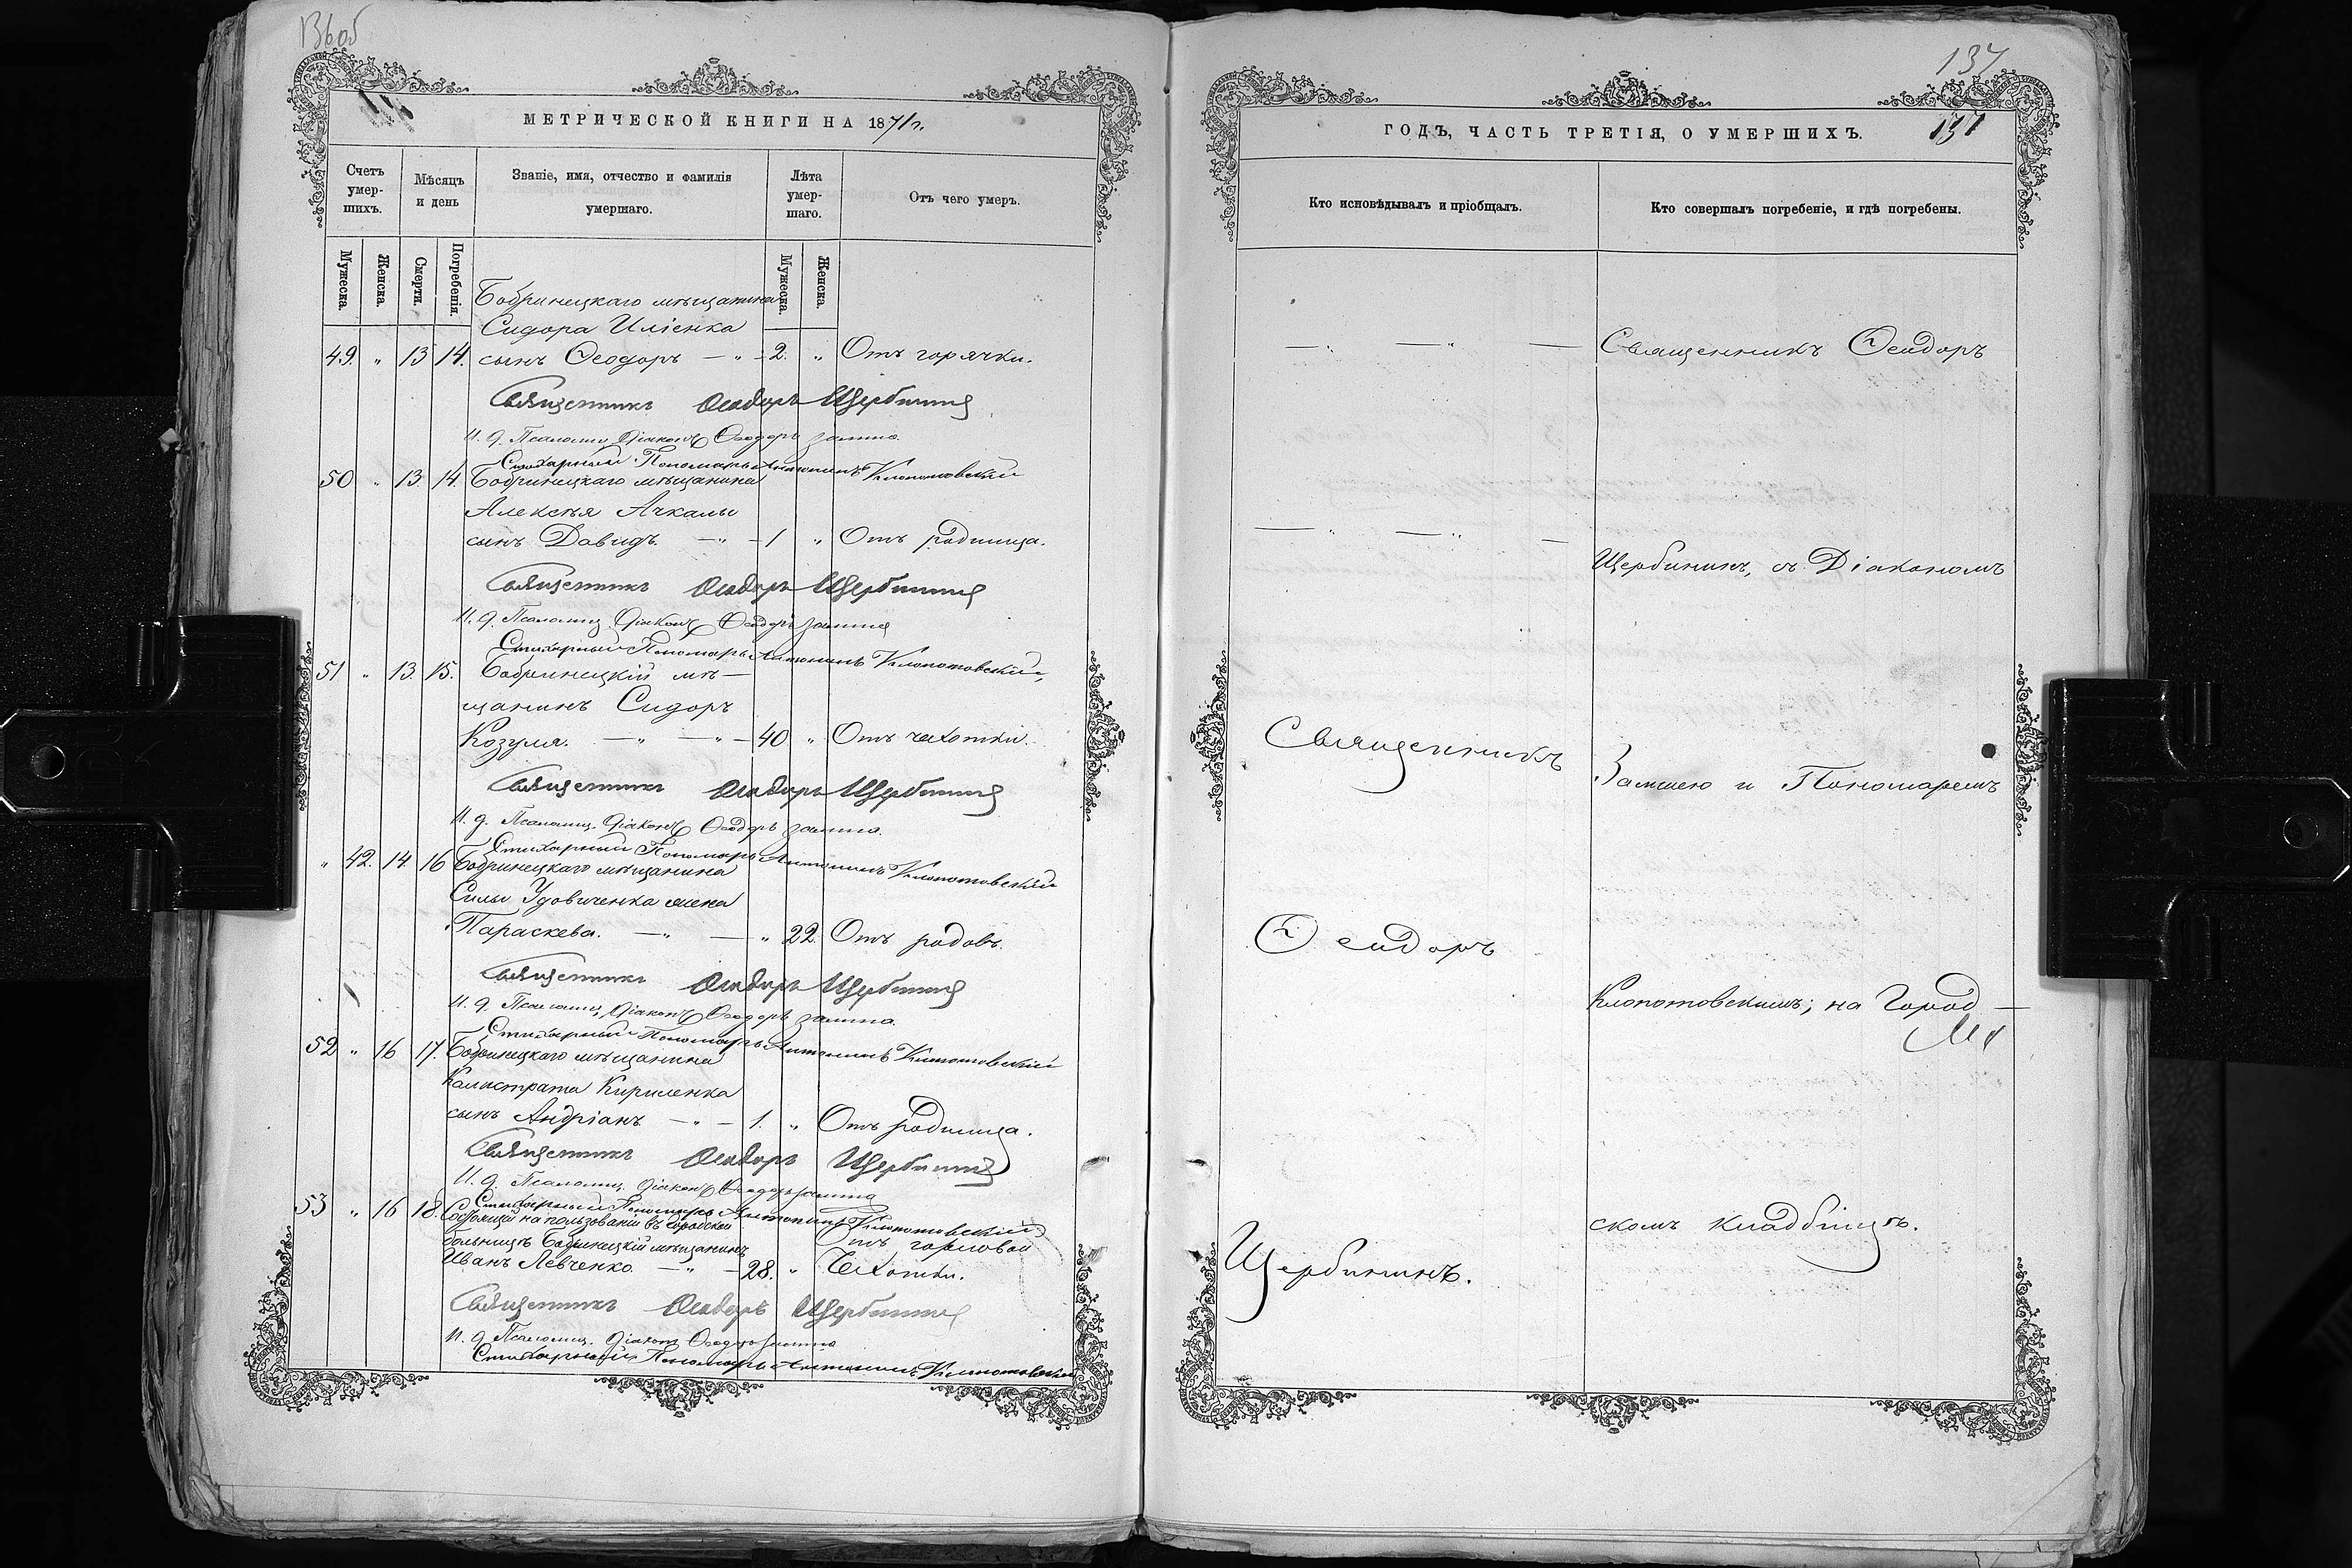 136об
МЕТРИЧЕСКОЙ КНИГИ НА 1871 г.
Счетъ умер-шихъ.
Мѣсяцъ и день
Званіе, имя, отчество и фамилія умершаго.
Лѣта умер-шаго.
Отъ чего умеръ.
Мужеска.
Женска.
Смерти.
Погребенія.
Мужеска.
Женска.
Бобринецкаго мѣщанина
Сидора Иліенка
49. " 13 14. сынъ Ѳеодоръ — " — 2. " Отъ горячки.
Священникъ Ѳеодоръ Щербининъ
И. д. Псаломщ. Діаконъ Ѳеодоръ Замша
Стихарный Пономарь Антонинъ Клопотовскій
50 " 13. 14. Бобринецкаго мѣщанина
Алексѣя Ачкалы
сынъ Давидъ. — " — 1 " Отъ родимца.
Священникъ Ѳеодоръ Щербининъ
И. д. Псаломщ. Діаконъ Ѳеодоръ Замша
Стихарный Пономарь Антонинъ Клопотовскій
51 " 13. 15. Бобринецкій мѣ-
щанинъ Сидоръ
Козуля. — " — " — 40 " Отъ чахотки.
Священникъ Ѳеодоръ Щербининъ
И. д. Псаломщ. Діаконъ Ѳеодоръ Замша.
Стихарный Пономарь Антонинъ Клопотовскій
" 42. 14 16 Бобринецкаго мѣщанина
Силы Удовиченка жена
Параскева. — " — " 22. Отъ родовъ.
Священникъ Ѳеодоръ Щербининъ
И. д. Псаломщ. Діаконъ Ѳеодоръ Замша.
Стихарный Пономарь Антонинъ Клопотовскій
52 " 16 17. Бобринецкаго мѣщанина
Калистрата Кириленка
сынъ Андріанъ — " — 1. " Отъ родимца.
Священникъ Ѳеодоръ Щербининъ
И. д. Псаломщ. Діаконъ Ѳеодоръ Замша
Стихарный Пономарь Антонинъ Клопотовскій
53 " 16 18. Состоящій на пользованіи въ городской
больницѣ Бобринецкій мѣщанинъ Отъ горловой
Иванъ Левченко — " — 28. " Чахотки.
Священникъ Ѳеодоръ Щербининъ
И. д. Псаломщ. Діаконъ Ѳеодоръ Замша
Стихарный Пономарь Антонинъ Клопотовскій
137
ГОДЪ, ЧАСТЬ ТРЕТІЯ, О УМЕРШИХЪ.
137
Кто исповѣдывалъ и пріобщалъ.
Кто совершалъ погребеніе, и гдѣ погребены.
— " — " — Священникъ Ѳеодоръ
— " — " —
Щербининъ, съ Діакономъ
Священникъ
Замшею и Пономаремъ
Ѳеодоръ
Клопотовскимъ; на Город-
скомъ кладбищѣ.
Щербининъ.